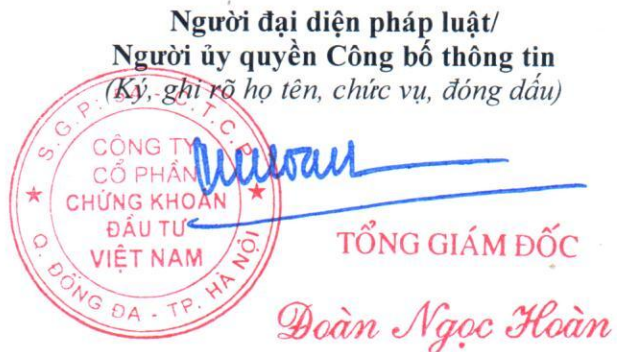 Người đại diện pháp luật/
Người ủy quyền Công bố thông tin
(Ký, ghi rõ họ tên, chức vụ, đóng dấu)
CÔNG TY
CỔ PHẦN
CHỨNG KHOÁN
ĐẦU TƯ
VIỆT NAM
Q. ĐỐNG ĐA - TP. HÀ NỘI
TỔNG GIÁM ĐỐC
Đoàn Ngọc Hoàn